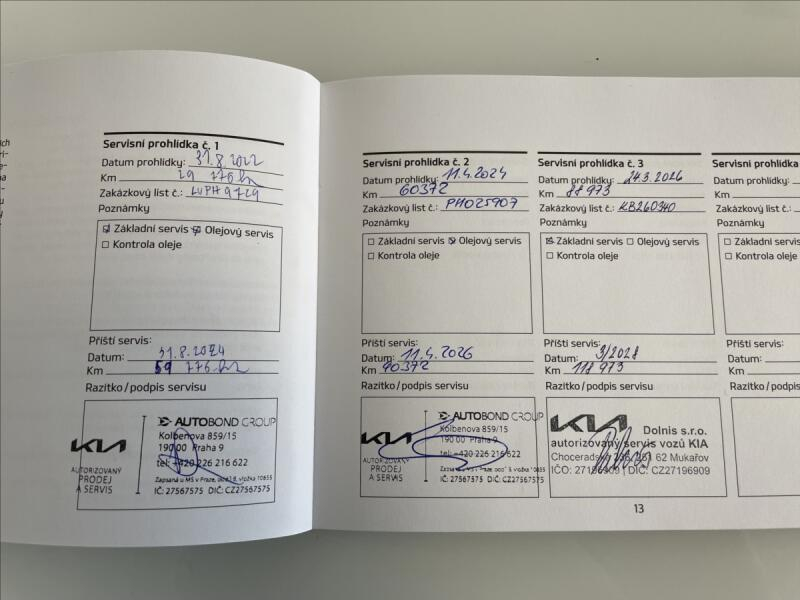 Servisní prohlídka č. 1
Datum prohlídky: 31.8.2022
Km 29 776 km
Zakázkový list č.: LVPH9729
Poznámky
Základní servis Olejový servis
Kontrola oleje
Příští servis:
Datum: 31.8.2024
Km 59 776 km
Razítko / podpis servisu
KIA
AUTORIZOVANÝ
PRODEJ
A SERVIS
AUTOBOND GROUP
Kolbenova 859/15
190 00 Praha 9
tel: +420 226 216 622
Zapsaná u MS v Praze, vložka 10855
IČ: 27567575 DIČ: CZ27567575
Servisní prohlídka č. 2
Datum prohlídky: 11.4.2024
Km 60372
Zakázkový list č.: PH025907
Poznámky
Základní servis Olejový servis
Kontrola oleje
Příští servis:
Datum: 11.4.2026
Km 90372
Razítko / podpis servisu
KIA
AUTORIZOVANÝ
PRODEJ
A SERVIS
AUTOBOND GROUP
Kolbenova 859/15
190 00 Praha 9
tel: +420 226 216 622
Zapsaná u MS v Praze, vložka 10855
IČ: 27567575 DIČ: CZ27567575
Servisní prohlídka č. 3
Datum prohlídky: 24.3.2026
Km 88 973
Zakázkový list č.: KB260340
Poznámky
Základní servis Olejový servis
Kontrola oleje
Příští servis:
Datum: 3/2028
Km 118 973
Razítko / podpis servisu
KIA
Dolnis s.r.o.
autorizovaný servis vozů KIA
Choceradská 62 Mukařov
IČO: 27196909 DIČ: CZ27196909
Servisní prohlídka
Datum prohlídky:
Km
Zakázkový list č.:
Poznámky
Základní servis
Kontrola oleje
Příští servis:
Datum:
Km
Razítko / podpis
13